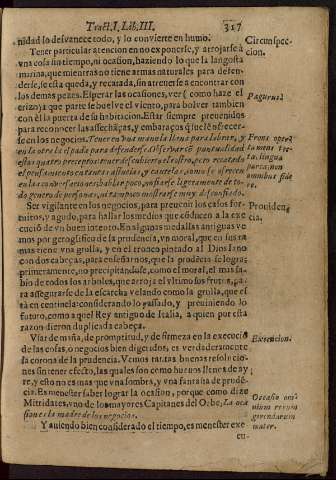 Tract. I. Lib. III. 317
nidad lo desvanece todo, y lo convierte en humo.
Tener particular atencion en no exponerse, y arrojarse à
vna cosa sin tiempo, ni ocasion, haziendo lo que la langosta
marina, que mientras no tiene armas naturales para defen-
derse, se està queda, y recatada, sin atreuerse à encontrar con
los demas pezes. Esperar las ocasiones, ver
erizo, à que parte se buelve el viento, para bolver tambien
con èl la puerta de su habitacion. Estar siempre prevenidos
para reconocer las assechãças, y embaraços que se
se en los negocios. Tener en vna mano la llaue para librar, y
en la otra la espada para defenderse, observarcõ puntualidad
estos quatro preceptos: tener descubierto el rostro, pero recatado
el pensamiento
en la conversacion:
do genero de personas, ni tampoco mostrarse muy desconfiado.
Ser vigilante en los negocios, para preuenir los casos for-
tuitos, y agudo, para hallar los medios que cõducen à la exe-
cuciõ de vn buen intento. En algunas medallas antiguas ve-
mos por geroglifico de la prudencia, vn moral, que en sus ra-
mas tiene vna grulla, y en el tronco pintado al Dios Iano
con dos cabeças, para enseñarnos, que la prudẽcia se logra;
primeramente, no precipitandose, como el moral, el mas sa-
bio de todos los arboles, que arroja el vltimo sus frutos, pa-
ra assegurarse de la escarcha: velando como la grulla, que es-
tà en centinela: considerando lo passado, y previniendo lo
futuro, como aquel Rey antiguo de Italia, à quien por esta
razon dieron duplicada cabeça.
Vsar de maña, de promptitud, y de firmeza en la execuciõ
de las cosas, ò negocios bien digeridos, es verdaderamente
la corona de la prudencia. Vemos tantas buenas resolucio-
nes sin tener efecto, las quales son como huevos llenos de ay-
re, y esto no es mas que vna sombra, y vna fantasia de prudẽ-
cia. Es menester saber lograr la ocasion, porque como dize
Mitridates, vno de los mayores Capitanes del Orbe, La oca
sion es la madre de los negocios.
Y auiendo bien considerado el tiempo, es menester exe
cu-
Circunspec-
cion.
Pagurus.
Frons aper-
ta mens tec-
ta, lingua
parca, non
omnibus fide
re.
Prouiden-
cia.
Execucion.
Occasio om-
nium rerum
gerendarum
mater.